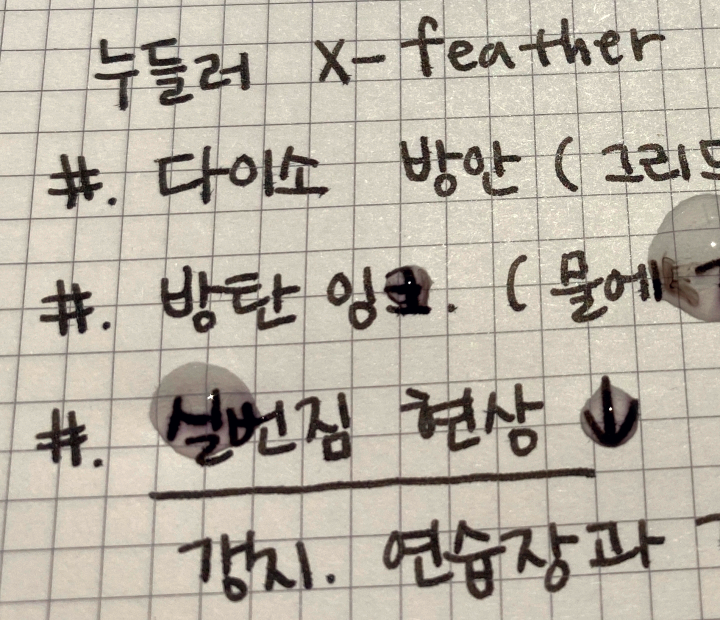 누들러 X-feather
#. 다이소 방안 (그리드
#. 방탄 잉크. (물에
#. 실번짐 현상 ↓
갱지. 연습장과